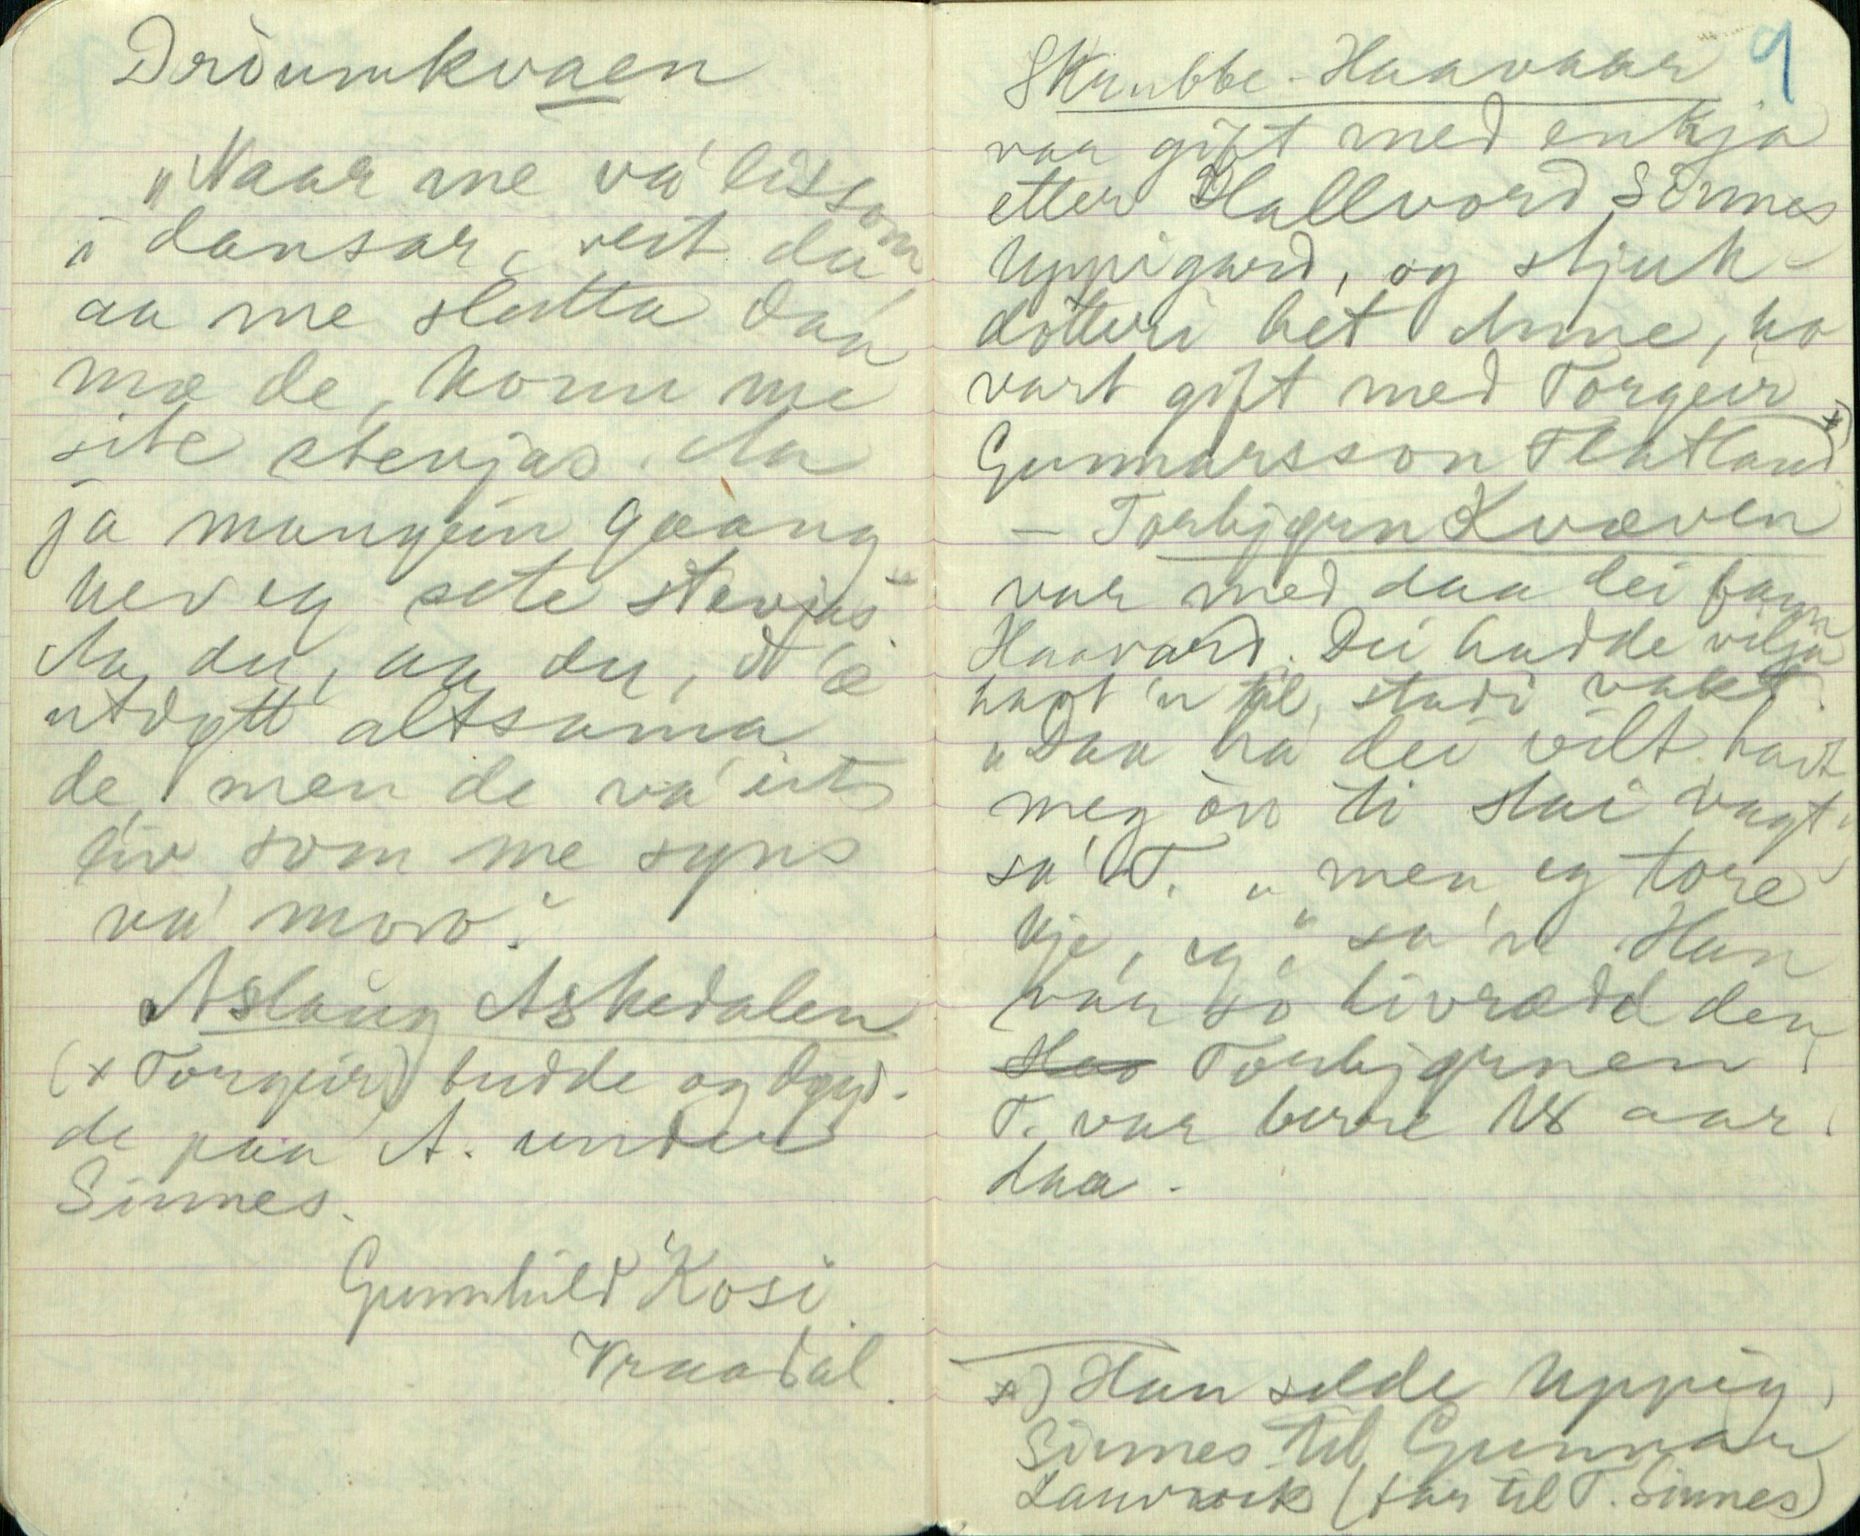 Draumkvaen
"Naar me va' lissom
i dansar, veit du,
aa me slutta daa
mæ de, konn me
site stevjas. Aa
ja mangein gaang
hev eg sete stevjas.
Aa du, aa du, d'æ
utdøtt altsama
de, men de va' eit
liv som me syns
va' moro."
Aslaug Askedalen
(x Torgeir) budde og døyd-
de paa A. under
Sinnes.
Gunnhild Kosi
Vraadal.
9
Skrubbe-Haavaar
var gift med enkja
etter Hallvord Sinnes
uppigard, og stjuk-
dotteri het Anne, ho
vart gift med Torgeir
Gunnarsson Flatland x)
— Torbjørn Kvæven
var med daa dei fann
Haavard. Dei hadde vilja
havt 'n til stadi vakt.
"Daa ha dei vilt havt
meg ti stai vagt"
sa' T. "men eg tore
kje, eg," sa'n. Han
var so livrædd den
Torbjørnen.
T. var berre 18 aar
daa.
x) Han selde uppig.
Sinnes til Gunnar
Lauvvik (far til T. Sinnes)